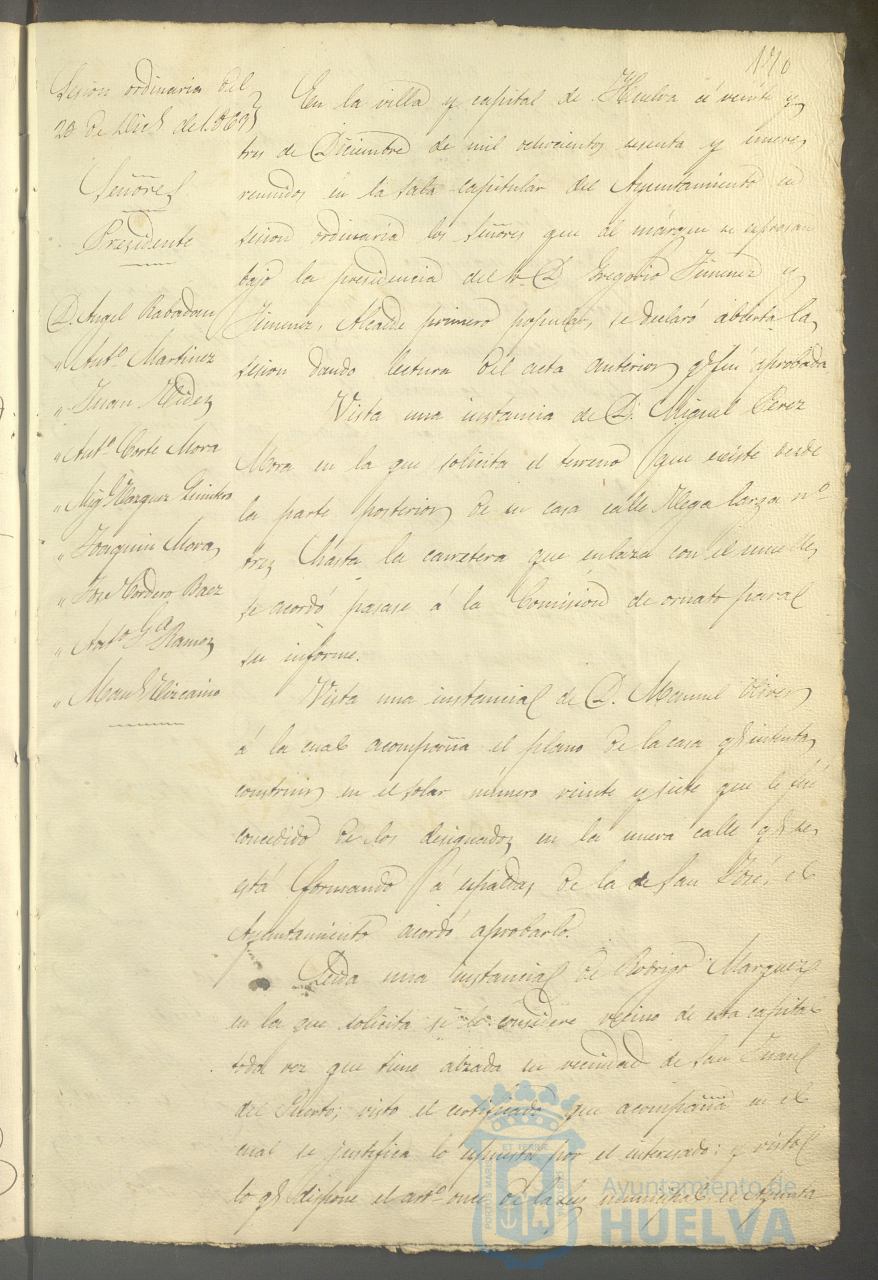 Sesion ordinaria del
de Dice de 1869
Señores
Presidente
D. Angel Rabadan
" Anto. Martinez
" Juan
" Anto. Corte Mora
" Migl Marquez Quintero
" Joaquin Mora
" Jose Cordero Baez
" Anto Ga Ramos
" Manl Vizcaino
En la villa y capital de Huelva á veinte y
tres de Diciembre de mil ochocientos sesenta y nueve,
reunidos en la sala capitular del Ayuntamiento en
sesion ordinaria los Señores que al márgen se espresan
bajo la presidencia del Sr. D. Gregorio Jimenez y
Jimenez, Alcalde primero popular, se declaró abierta la
sesion dando lectura del acta anterior, que fué aprobada.
Vista una instancia de D. Miguel Perez
Mora en la que solicita el terreno que existe desde
la parte posterior de su casa calle Vega larga no.
tres hasta la carretera que enlaza con el muelle,
se acordó pasase á la Comision de ornato para
su informe.
Vista una instancia de D. Manuel Oliver
á la cual acompaña el plano de la casa qe intenta
construir en el solar número veinte y siete que le fué
concedido de los designados en la nueva calle qe se
está formando á espaldas de la de San José, el
Ayuntamiento acordó aprobarlo.
Leida una instancia de Rodrigo Marquez
en la que solicita se le considere vecino de esta capital
toda vez que tiene alzada su vecindad de San Juan
del Puerto; visto el certificado que acompaña en el
cual se justifica lo espuesto por el interesado: y visto
lo qe dispone el arto. once de la ley municipal el Ayunta
PORTUS MARIS ET TERRAE CUSTODIA
Ayuntamiento de
HUELVA